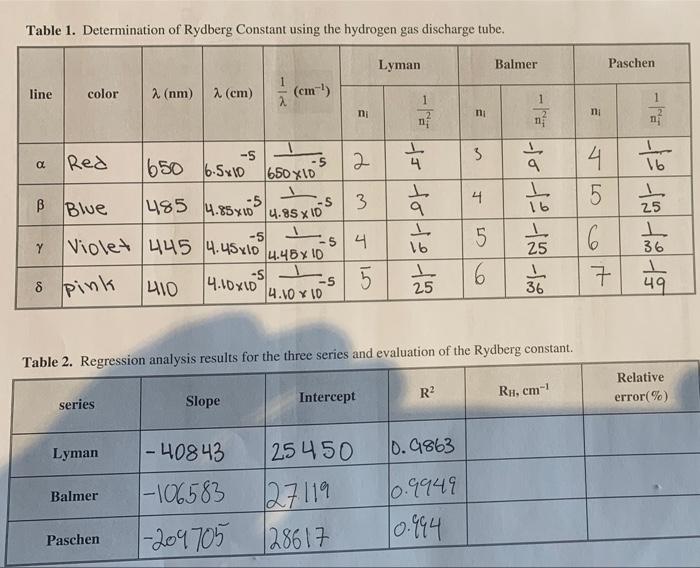 Table 1. Determination of Rydberg Constant using the hydrogen gas discharge tube.
line color λ (nm) λ (cm) 1/λ (cm⁻¹) Lyman Balmer Paschen
nᵢ 1/nᵢ² nᵢ 1/nᵢ² nᵢ 1/nᵢ²
α Red 650 6.5x10⁻⁵ 1/650x10⁻⁵ 2 1/4 3 1/9 4 1/16
β Blue 485 4.85x10⁻⁵ 1/4.85x10⁻⁵ 3 1/9 4 1/16 5 1/25
γ Violet 445 4.45x10⁻⁵ 1/4.45x10⁻⁵ 4 1/16 5 1/25 6 1/36
δ pink 410 4.10x10⁻⁵ 1/4.10x10⁻⁵ 5 1/25 6 1/36 7 1/49
Table 2. Regression analysis results for the three series and evaluation of the Rydberg constant.
series Slope Intercept R² R_H, cm⁻¹ Relative error(%)
Lyman -40843 25450 0.9863
Balmer -106583 27119 0.9949
Paschen -209705 28617 0.994